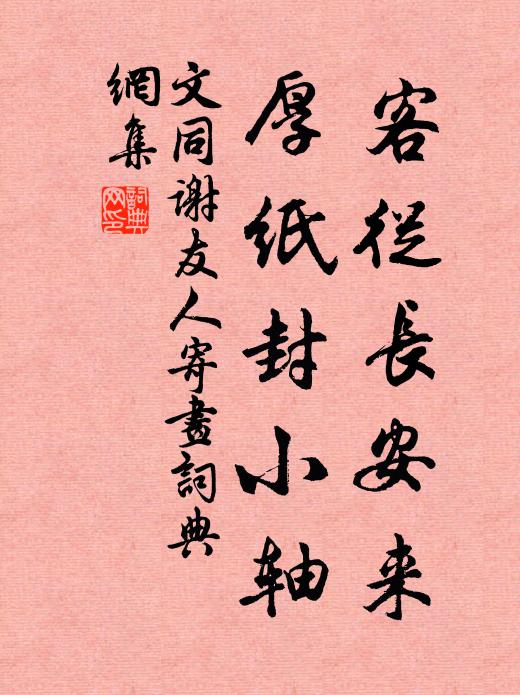 客從長安来
厚紙封小轴
文同謝友人寄畫詞典
網集
詞典
网印